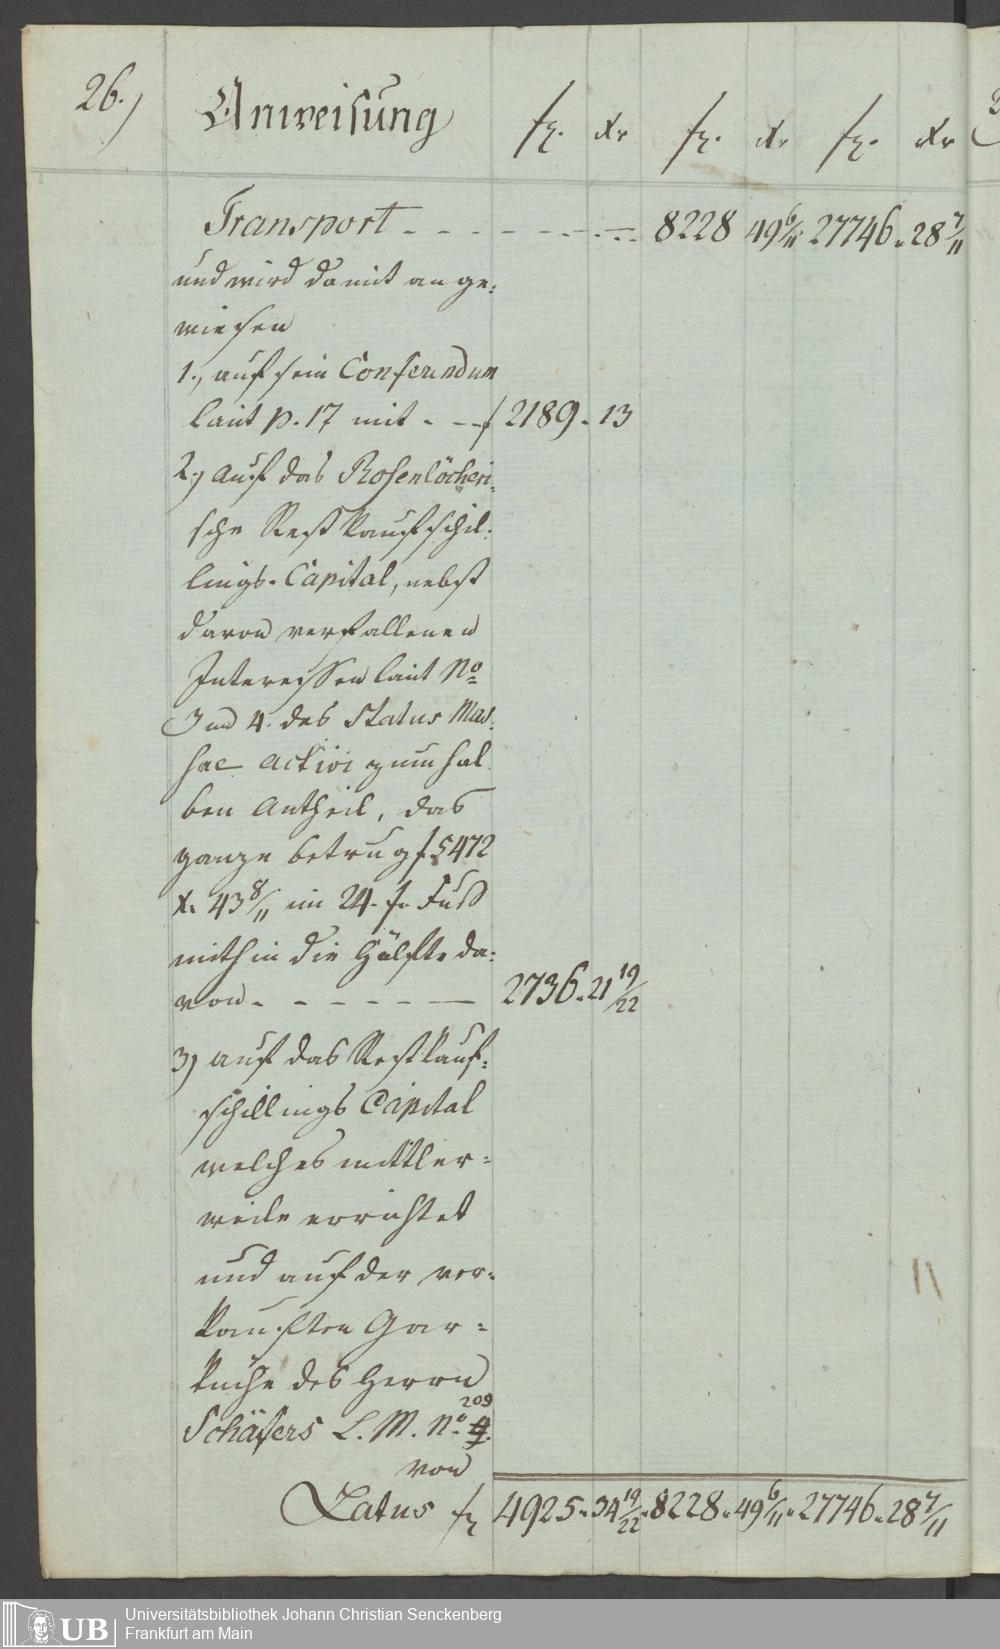 26.) Anweisung fl. Xr fl. Xr fl. Xr
Transport - - - - - - - - - 8228 49 6/11 27746. 28 7/11
und wird damit ange:
wiesen
1., auf sein Conferendum
laut p. 17 mit - - - f 2189. 13
2.) auf das Rosenlöcheri:
sche Rest kaufschil:
lings-Capital, nebst
davon verfallenen
Interessen laut No
3 und 4. des Status Mas:
sae activi zum hal
ben Antheil, das
ganze betrug f. 5472
X. 43 8/11 im 24. f. Fuß
mithin die Hälfte da:
von - - - - - - 2736. 21 19/22
3) auf das Restkauf:
schillings Capital
welches mittler:
weile errichtet
und auf der ver:
kauften Gar:
küche des Herrn
209
Schäfers L. M. No. 9.
von
Latus fl 4925. 34 19/22. 8228. 49 6/11. 27746. 28 7/11
UB
Universitätsbibliothek Johann Christian Senckenberg
Frankfurt am Main